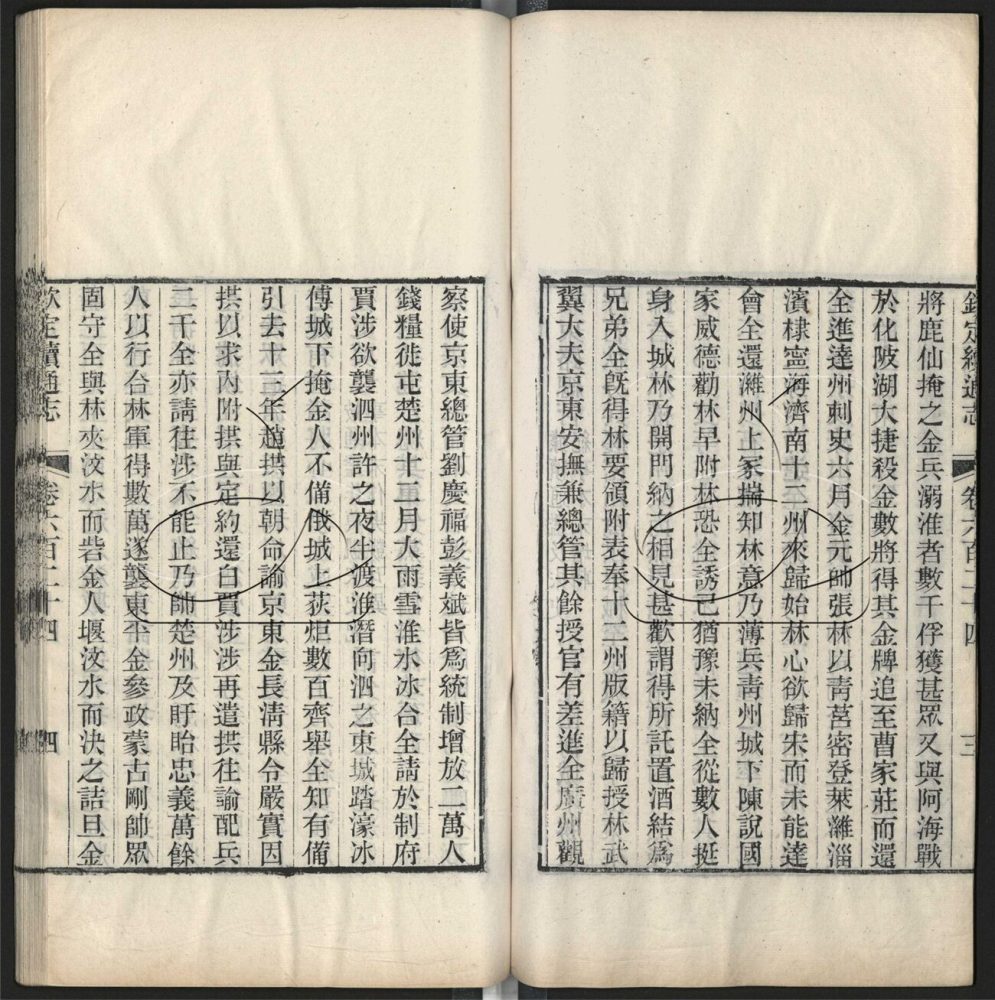 欽定續通志 卷六百二十四 三
將鹿仙掩之金兵溺淮者數千俘獲甚眾又與阿海戰
於化陂湖大捷殺金數將得其金牌追至曹家莊而還
全進達州刺史六月金元帥張林以靑莒密登萊濰淄
濱棣寧海濟南十二州來歸始林心欲歸宋而未能達
會全還濰州上冢揣知林意乃薄兵靑州城下陳說國
家威德勸林早附林恐全誘己猶豫未納全從數人挺
身入城林乃開門納之相見甚歡謂得所託置酒結爲
兄弟全旣得林要領附表奉十二州版籍以歸授林武
翼大夫京東安撫兼總管其餘授官有差進全廣州觀
察使京東總管劉慶福彭義斌皆爲統制增放二萬人
錢糧徙屯楚州十二月大雨雪淮水冰合全請於制府
賈涉欲襲泗州許之夜半渡淮潛向泗之東城踏濠冰
傅城下掩金人不備俄城上荻炬數百齊舉全知有備
引去十三年趙拱以朝命諭京東金長淸縣令嚴實因
拱以求內附拱與定約還白賈涉涉再遣拱往諭配兵
二千全亦請往涉不能止乃帥楚州及盱眙忠義萬餘
人以行台林軍得數萬遂襲東平金參政蒙古剛帥眾
固守全與林夾汶水而砦金人堰汶水而決之詰旦金
欽定續通志 卷六百二十四 四